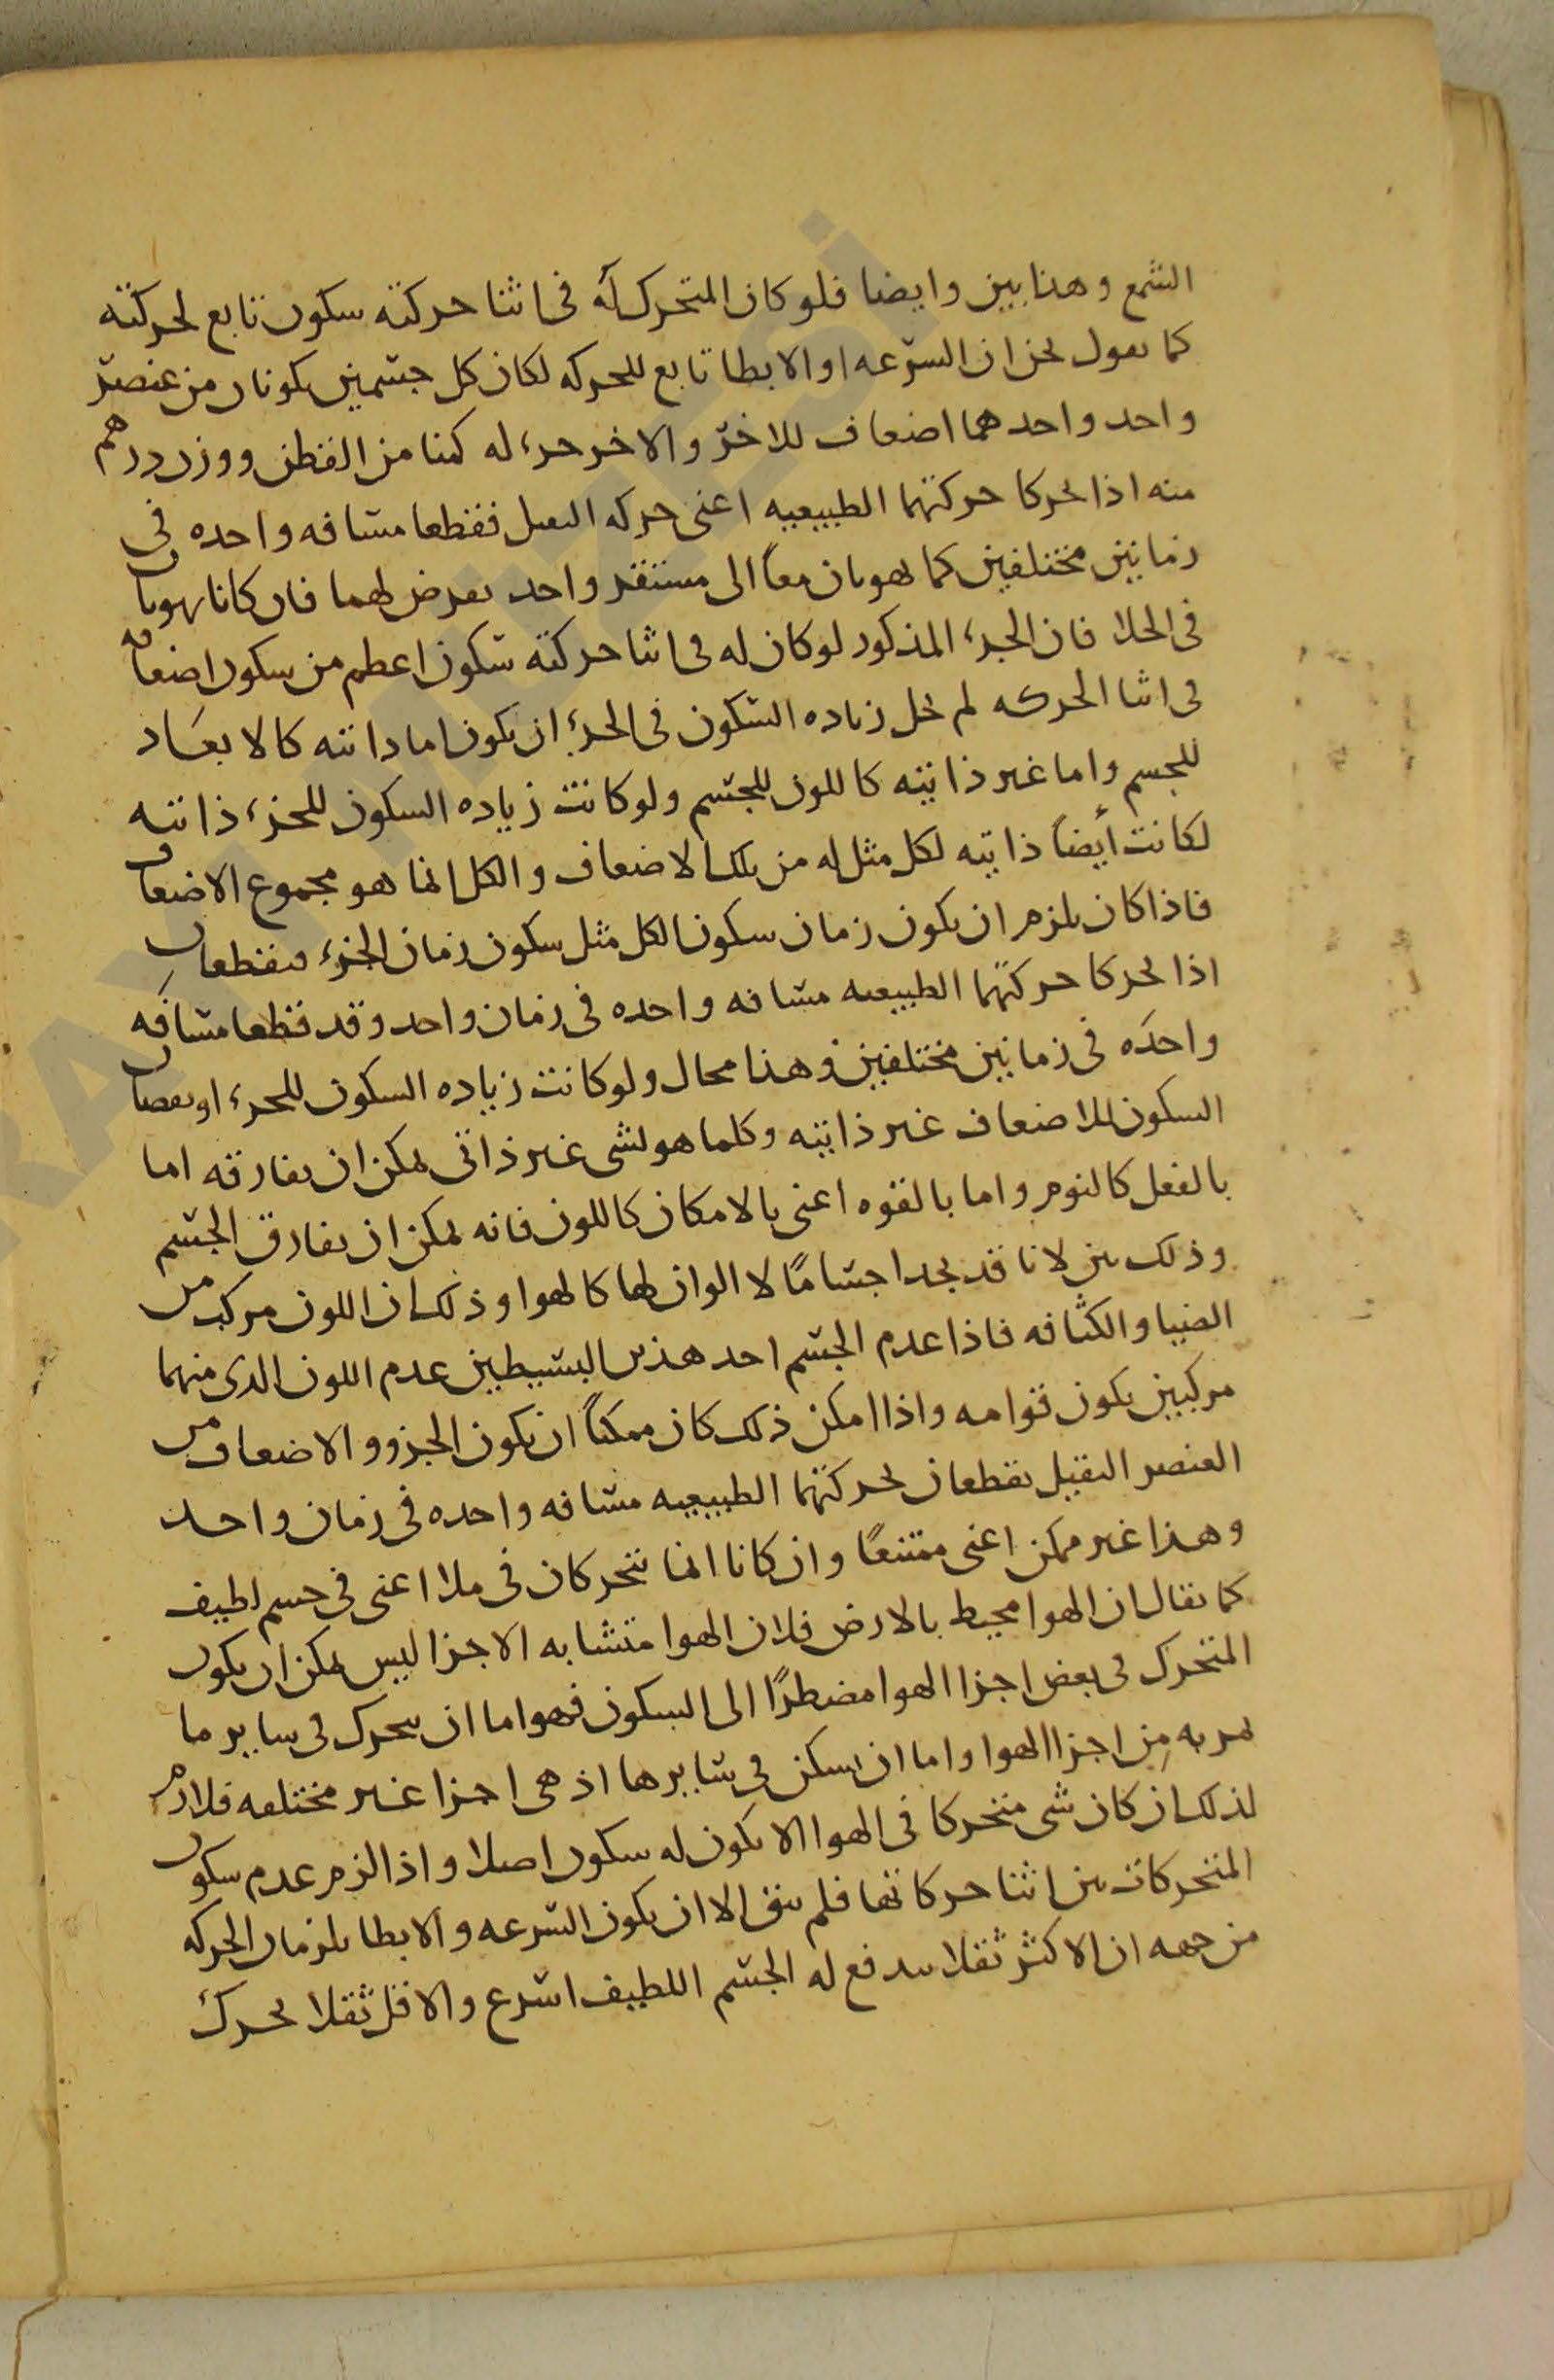 الشمع وهذا بين وايضا فلو كان المتحرك له فى اثنا حركته سكون تابع لحركته
كما نقول نحن ان السرعه او الابطا تابع للحركه لكان كل جسمين يكونان من عنصر
واحد واحدهما اضعاف للاخر والاخر جزء له كمنا من القطن ووزن درهم
منه اذا تحركا حركتهما الطبيعيه اعنى حركه الثقيل فقطعا مسافه واحده فى
زمانين مختلفين كما يهويان معاً الى مستقر واحد يعرض لهما فان كانا يهويان
فى الخلا فان الجزء المذكور لو كان له فى اثنا حركته سكون اعظم من سكون اضعافه
فى اثنا الحركه لم تخل زياده السكون فى الجزء ان يكون اما ذاتيه كالابعاد
للجسم واما غير ذاتيه كاللون للجسم ولو كانت زياده السكون للجزء ذاتيه
لكانت أيضاً ذاتيه لكل مثل له من تلك الاضعاف والكل انما هو مجموع الاضعاف
فاذا كان يلزم ان يكون زمان سكون الكل مثل سكون زمان الجزء فيقطعان
اذا تحركا حركتهما الطبيعيه مسافه واحده فى زمان واحد وقد قطعا مسافه
واحده فى زمانين مختلفين وهذا محال ولو كانت زياده السكون للجزء او نقصان
السكون للاضعاف غير ذاتيه وكلما هو لشى غير ذاتى يمكن ان يفارقه اما
بالفعل كالنوم واما بالقوه اعنى بالامكان كاللون فانه يمكن ان يفارق الجسم
وذلك بين لانا قد نجد اجساماً لا الوان لها كالهوا وذلك ان اللون مركب من
الضيا والكثافه فاذا عدم الجسم احد هذين البسيطين عدم اللون الذى منهما
مركبين يكون قوامه واذا امكن ذلك كان ممكناً ان يكون الجزو والاضعاف من
العنصر الثقيل يقطعان بحركتهما الطبيعيه مسافه واحده فى زمان واحد
وهذا غير ممكن اعنى ممتنعاً وان كانا انما يتحركان فى ملا اعنى فى جسم لطيف
كما يقال ان الهوا محيط بالارض فلان الهوا متشابه الاجزا ليس يمكن ان يكون
المتحرك فى بعض اجزا الهوا مضطراً الى السكون فهو اما ان يتحرك فى ساير ما
يمر به من اجزا الهوا واما ان يسكن فى سايرها اذ هى اجزا غير مختلفه فلازم
لذلك ان كان شى متحركا فى الهوا الا يكون له سكون اصلا واذا لزم عدم سكون
المتحركات بين اثنا حركاتها فلم يبق الا ان يكون السرعه والابطا يلزمان الحركه
من جهه ان الاكثر ثقلا يندفع له الجسم اللطيف اسرع والاقل ثقلا يحرك